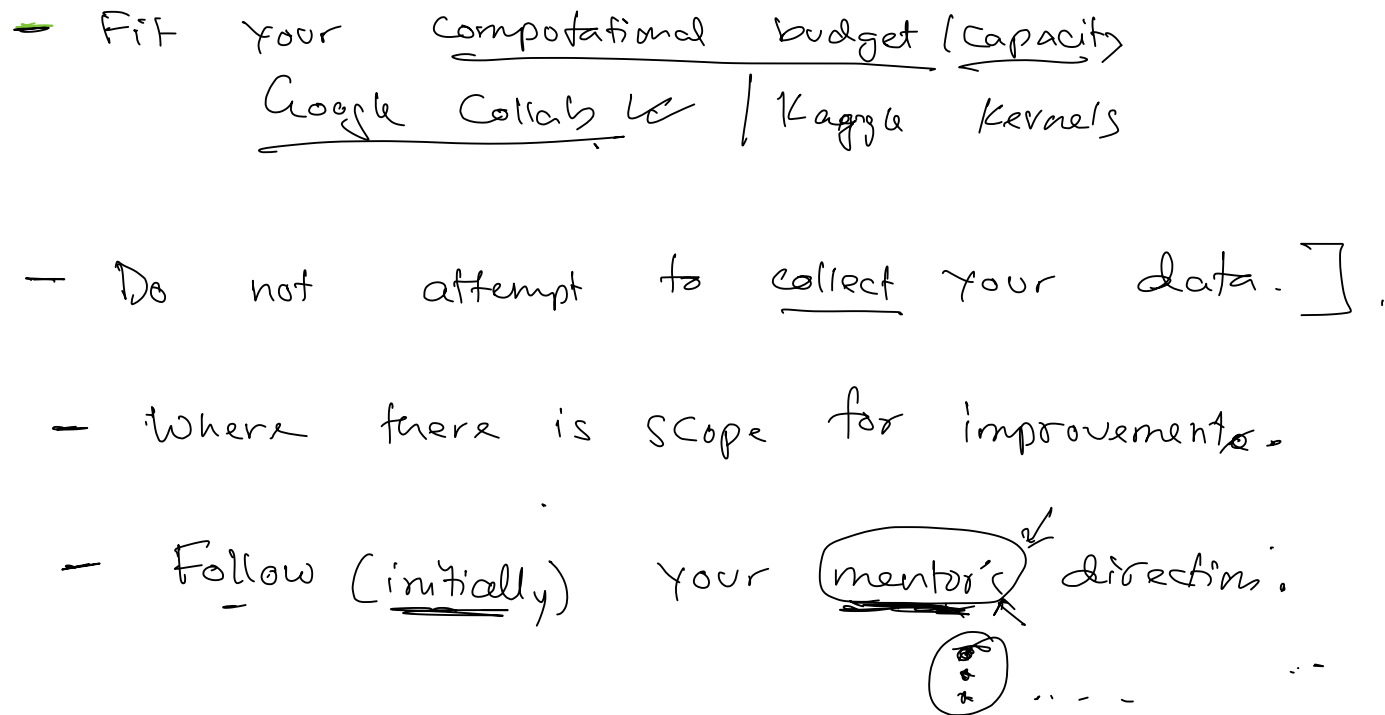 - Fit your computational budget / capacity
Google Collab | Kaggle Kernels
- Do not attempt to collect your data. ].
- Where there is scope for improvements.
- Follow (initially) your mentor's direction.